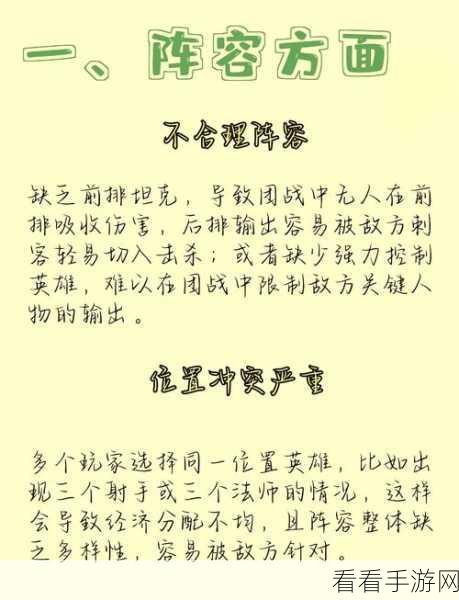 一、阵容方面
不合理阵容
缺乏前排坦克，导致团战中无人在前
排吸收伤害，后排输出容易被敌方刺
客轻易切入击杀；或者缺少强力控制
英雄，难以在团战中限制敌方关键人
物的输出。
位置冲突严重
多个玩家选择同一位置英雄，比如出
现三个射手或三个法师的情况，这样
会导致经济分配不均，且阵容整体缺
乏多样性，容易被敌方针对。
看看手游网